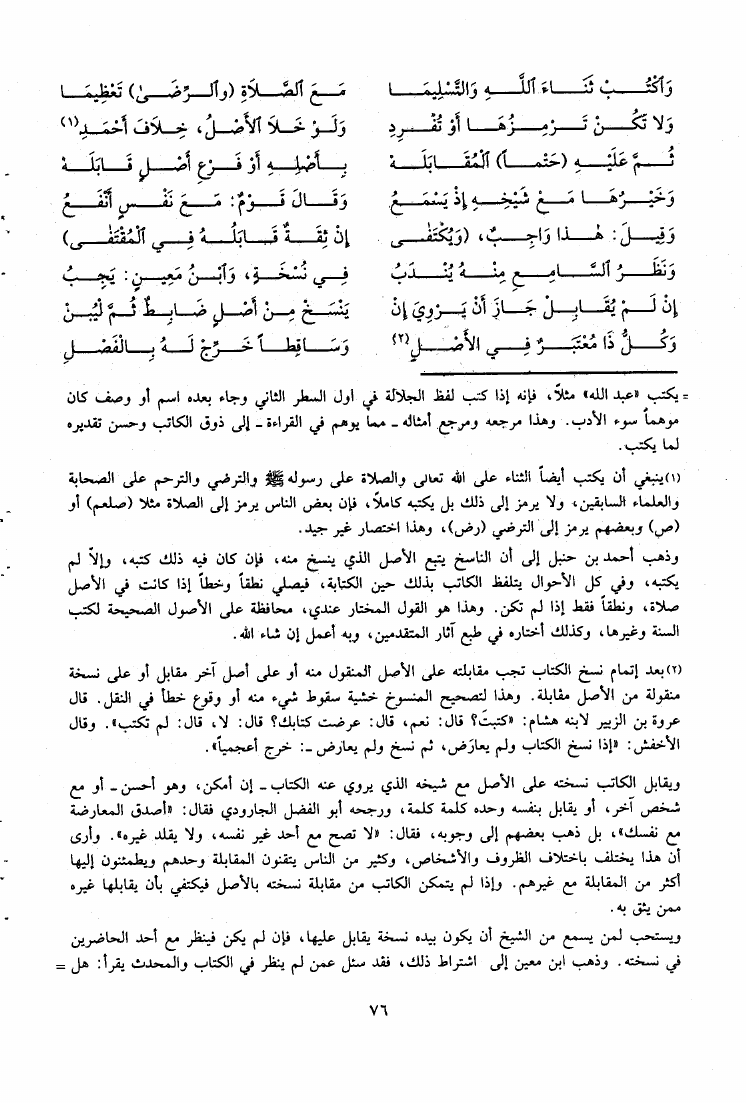 وَاكْتُبْ ثَنَاءَ اللَّهِ وَالتَّسْلِيمَا مَعَ الصَّلَاةِ (والرِّضَىٰ) تَعْظِيمَا
وَلا تَكُنْ تَرْمِزُهَا أَوْ تُفْرِدِ وَلَوْ خَلَا الْأَصْلُ، خِلَافَ أَحْمَدِ(١)
ثُمَّ عَلَيْهِ (حَتْماً) الْمُقَابَلَهْ بِأَصْلِهِ أَوْ فَرْعِ أَصْلٍ قَابَلَهْ
وَخَيْرُهَا مَعْ شَيْخِهِ إِذْ يَسْمَعُ وَقَالَ قَوْمٌ: مَعَ نَفْسٍ أَنْفَعُ
وَقِيلَ: هٰذَا وَاجِبٌ، (وَيُكْتَفَى إِنْ ثِقَةٌ قَابَلَهُ فِي الْمُقْتَفَى)
وَنَظَرُ السَّامِعِ مِنْهُ يُنْدَبُ فِي نُسْخَةٍ، وَابْنُ مَعِينٍ: يَجِبُ
إِنْ لَمْ يُقَابِلْ جَازَ أَنْ يَرْوِيَ إِنْ يَنْسَخْ مِنْ أَصْلٍ ضَابِطٌ ثُمَّ لْيُبِنْ
وَكُلُّ ذَا مُعْتَبَرٌ فِي الْأَصْلِ(٢) وَسَاقِطاً خَرِّجْ لَهُ بِالْفَصْلِ
= يكتب «عبد الله» مثلاً، فإنه إذا كتب لفظ الجلالة في أول السطر الثاني وجاء بعده اسم أو وصف كان
موهماً سوء الأدب. وهذا مرجعه ومرجع أمثاله ـ مما يوهم في القراءة ـ إلى ذوق الكاتب وحسن تقديره
لما يكتب.
(١) ينبغي أن يكتب أيضاً الثناء على الله تعالى والصلاة على رسوله ﷺ والترضي والترحم على الصحابة
والعلماء السابقين، ولا يرمز إلى ذلك بل يكتبه كاملاً، فإن بعض الناس يرمز إلى الصلاة مثلا (صلعم) أو
(ص) وبعضهم يرمز إلى الترضي (رض)، وهذا اختصار غير جيد.
وذهب أحمد بن حنبل إلى أن الناسخ يتبع الأصل الذي ينسخ منه، فإن كان فيه ذلك كتبه، وإلاّ لم
يكتبه، وفي كل الأحوال يتلفظ الكاتب بذلك حين الكتابة، فيصلي نطقاً وخطاً إذا كانت في الأصل
صلاة، ونطقاً فقط إذا لم تكن. وهذا هو القول المختار عندي، محافظة على الأصول الصحيحة لكتب
السنة وغيرها، وكذلك أختاره في طبع آثار المتقدمين، وبه أعمل إن شاء الله.
(٢) بعد إتمام نسخ الكتاب تجب مقابلته على الأصل المنقول منه أو على أصل آخر مقابل أو على نسخة
منقولة من الأصل مقابلة. وهذا لتصحيح المنسوخ خشية سقوط شيء منه أو وقوع خطأ في النقل. قال
عروة بن الزبير لابنه هشام: «كتبتَ؟ قال: نعم، قال: عرضت كتابك؟ قال: لا، قال: لم تكتب». وقال
الأخفش: «إذا نسخ الكتاب ولم يعارَض، ثم نسخ ولم يعارض ـ: خرج أعجمياً».
ويقابل الكاتب نسخته على الأصل مع شيخه الذي يروي عنه الكتاب ـ إن أمكن، وهو أحسن ـ أو مع
شخص آخر، أو يقابل بنفسه وحده كلمة كلمة، ورجحه أبو الفضل الجارودي فقال: «أصدق المعارضة
مع نفسك»، بل ذهب بعضهم إلى وجوبه، فقال: «لا تصح مع أحد غير نفسه، ولا يقلد غيره». وأرى
أن هذا يختلف باختلاف الظروف والأشخاص، وكثير من الناس يتقنون المقابلة وحدهم ويطمئنون إليها
أكثر من المقابلة مع غيرهم. وإذا لم يتمكن الكاتب من مقابلة نسخته بالأصل فيكتفي بأن يقابلها غيره
ممن يثق به.
ويستحب لمن يسمع من الشيخ أن يكون بيده نسخة يقابل عليها، فإن لم يكن فينظر مع أحد الحاضرين
في نسخته. وذهب ابن معين إلى اشتراط ذلك، فقد سئل عمن لم ينظر في الكتاب والمحدث يقرأ: هل =
٧٦